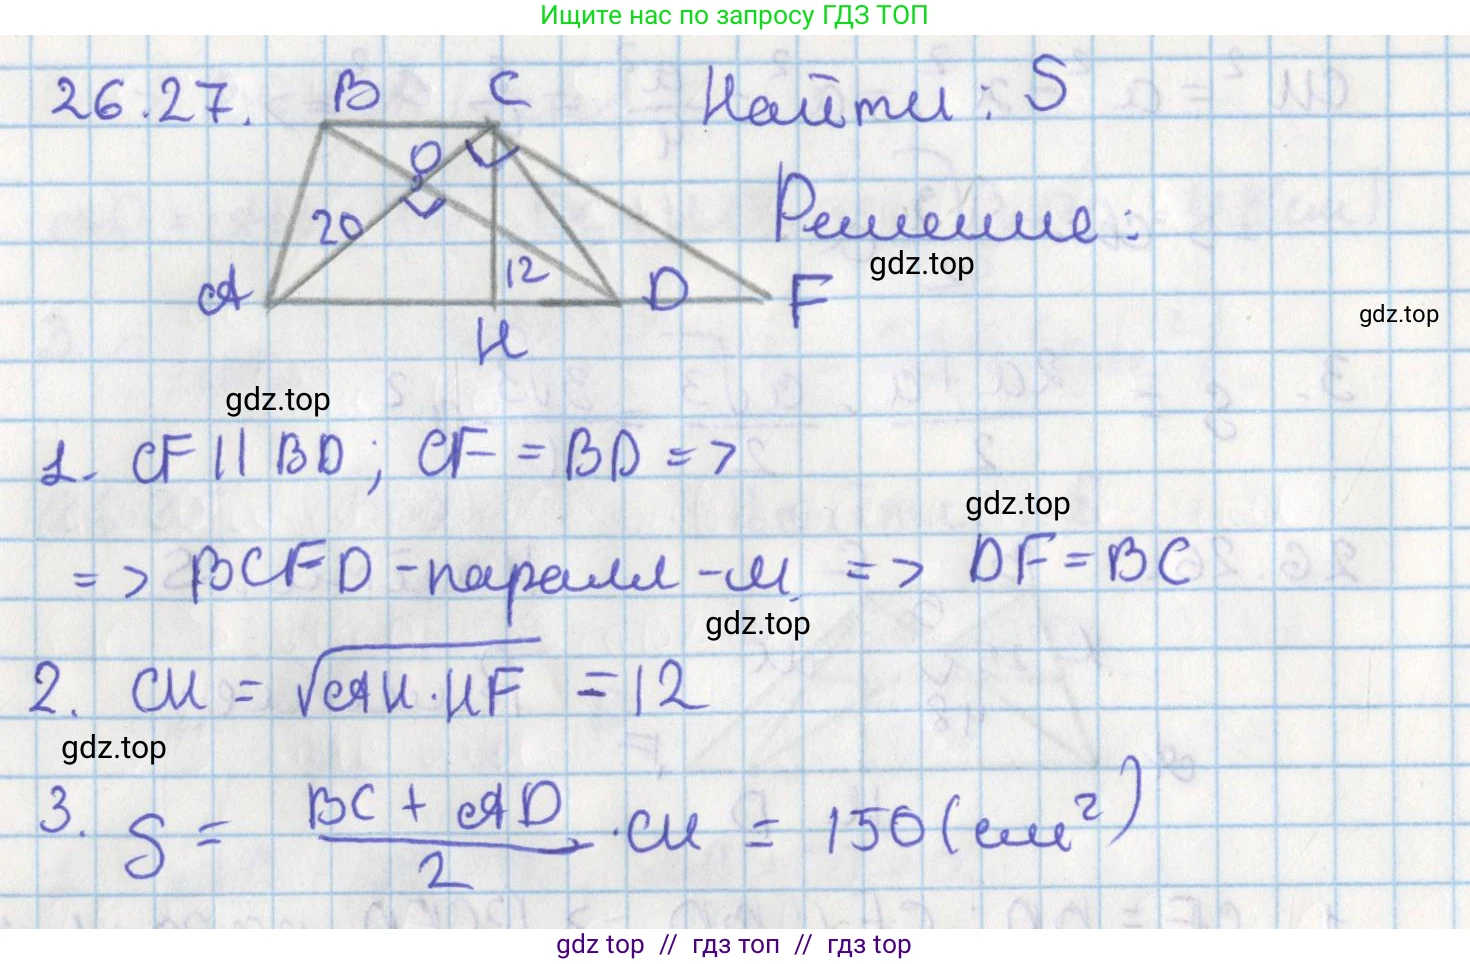 Ищите нас по запросу ГДЗ ТОП
26.27.
B C
Найти: S
O
20
Решение:
gdz.top
A
12
D F
gdz.top
H
gdz.top
1. CF || BD; CF = BD =>
gdz.top
=> BCFD - паралл-м. => DF = BC
gdz.top
2. CH = √AH·HF = 12
gdz.top
3. S = BC + AD / 2 · CH = 150 (см²)
gdz top // гдз топ // гдз top